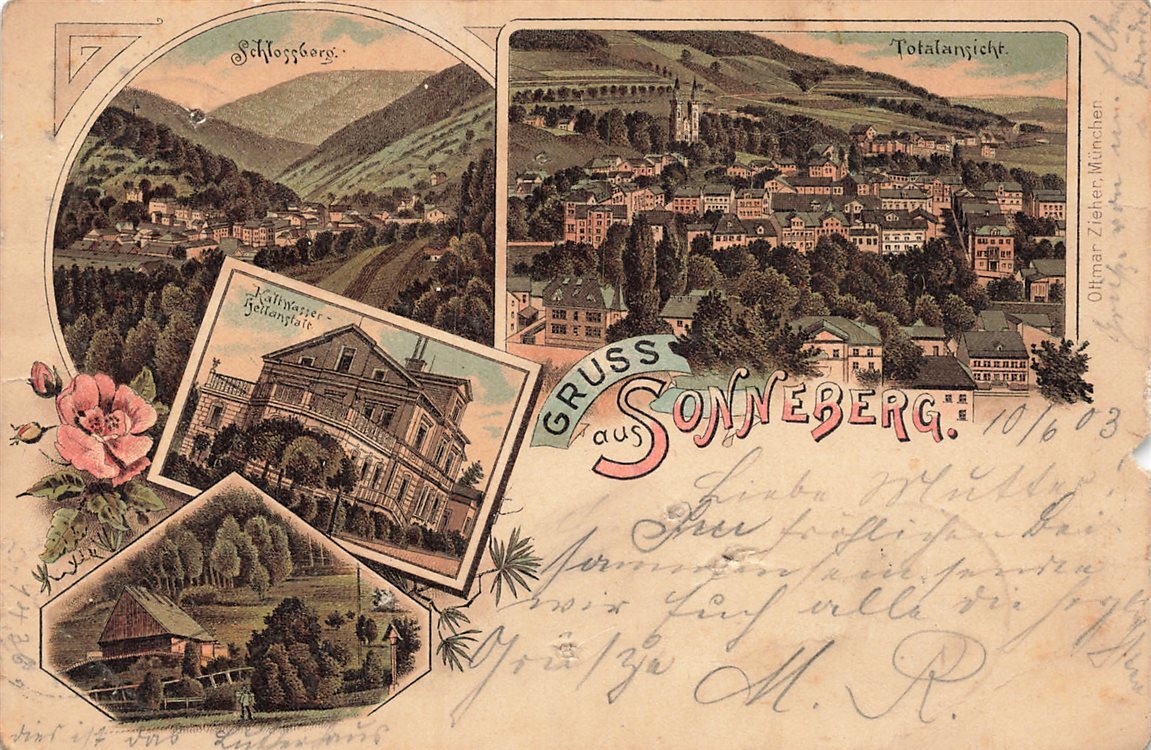 Schlossberg.
Totalansicht.
Kaltwasser-
Heilanstalt
GRUSS
aus SONNEBERG.
Ottmar Zieher, München.
10/6 03
Liebe Mutter!
Im fröhlichen Bei
sammensein senden
wir Euch alle die
Grüße
M. R.
dies ist das Lutherhaus